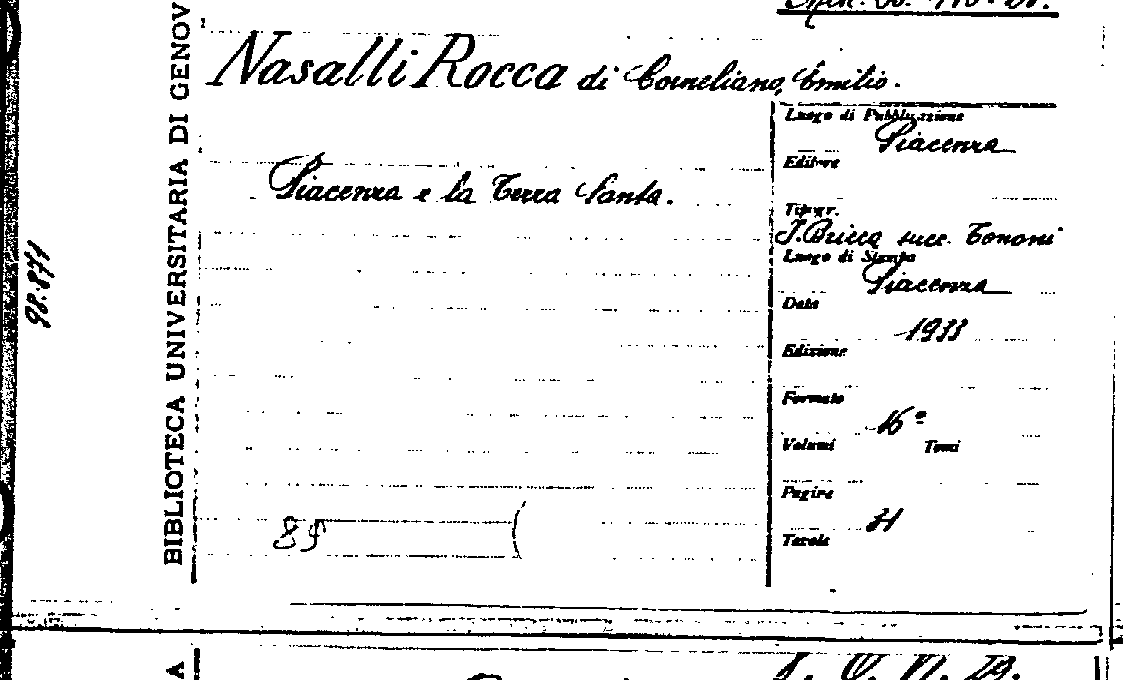 Nasalli Rocca di Corneliano, Emilio.
Piacenza e la Terra Santa.
Luogo di Pubblicazione
Piacenza
Editore
Tipogr.
J. Bricca succ. Tononi
Luogo di Stampa
Piacenza
Data
1933
Edizione
Formato
16°
Volumi Tomi
Pagine
31
Tavole
BIBLIOTECA UNIVERSITARIA DI GENOV
98.871